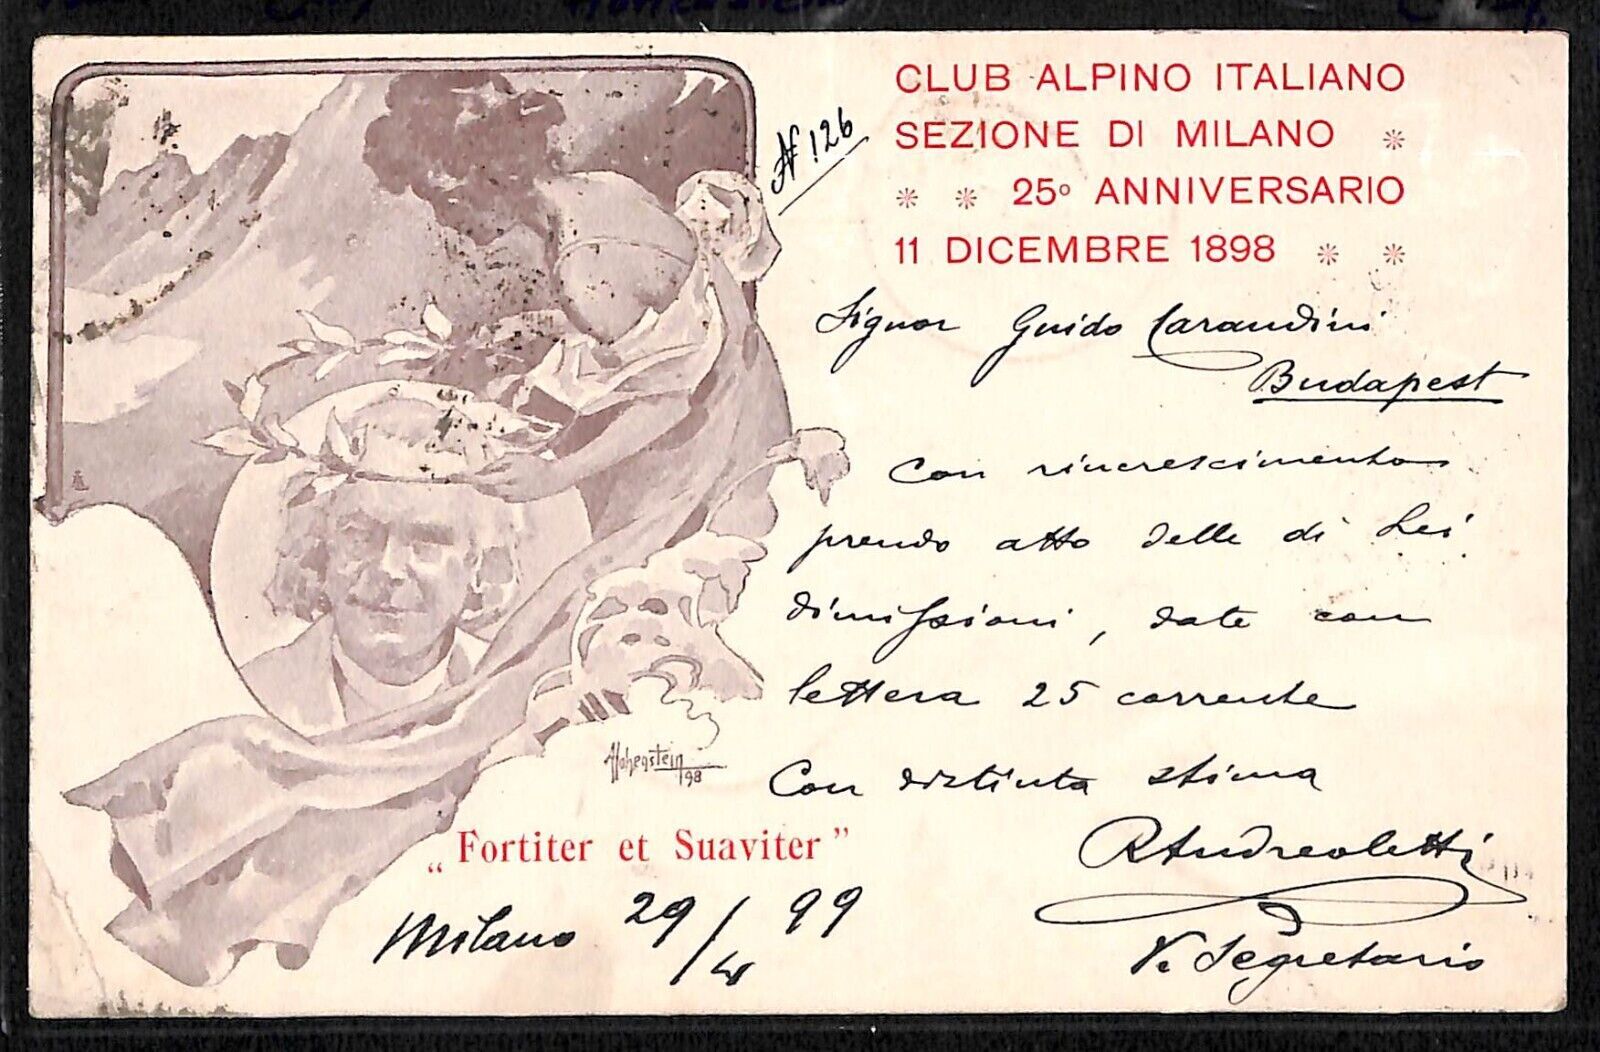 CLUB ALPINO ITALIANO
SEZIONE DI MILANO
25º ANNIVERSARIO
11 DICEMBRE 1898
N 126
Signor Guido Carandini
Budapest
Con rincrescimento
prendo atto delle di Lei
dimissioni, date con
lettera 25 corrente
Con distinta stima
RAndreoletti
V. Segretario
AHohenstein 98
„Fortiter et Suaviter"
Milano 29/4 99